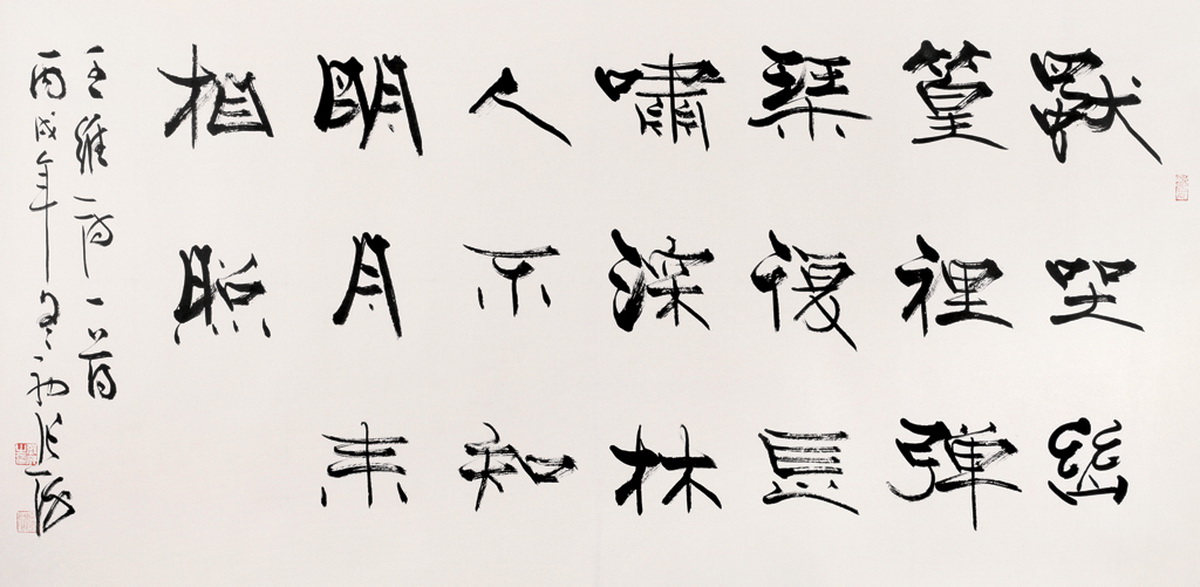 獨坐幽
篁裡彈
琴復長
嘯深林
人不知
明月來
相照
王維詩一首
丙戌年初張海